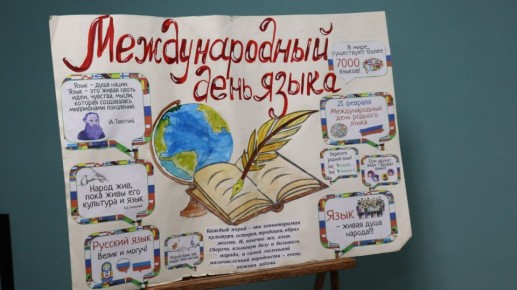 Международный
день языка
Язык – душа нации.
Язык – это живая плоть
идеи, чувства, мысли,
которая создавалась
миллионами поколений.
Народ жив,
пока живы его
культура и язык
Русский язык
Велик и могуч!
В мире
существует более
7000
языков!
21 февраля
Международный
день родного
языка
Берегите
родной язык!
Язык
– живая душа
народа!!!
Каждый народ – это неповторимая
культура, история, традиции, образ
жизни. И, конечно же, язык.
Сберечь языковую базу и большого
народа, и самой маленькой
малочисленной народности – очень
важная задача